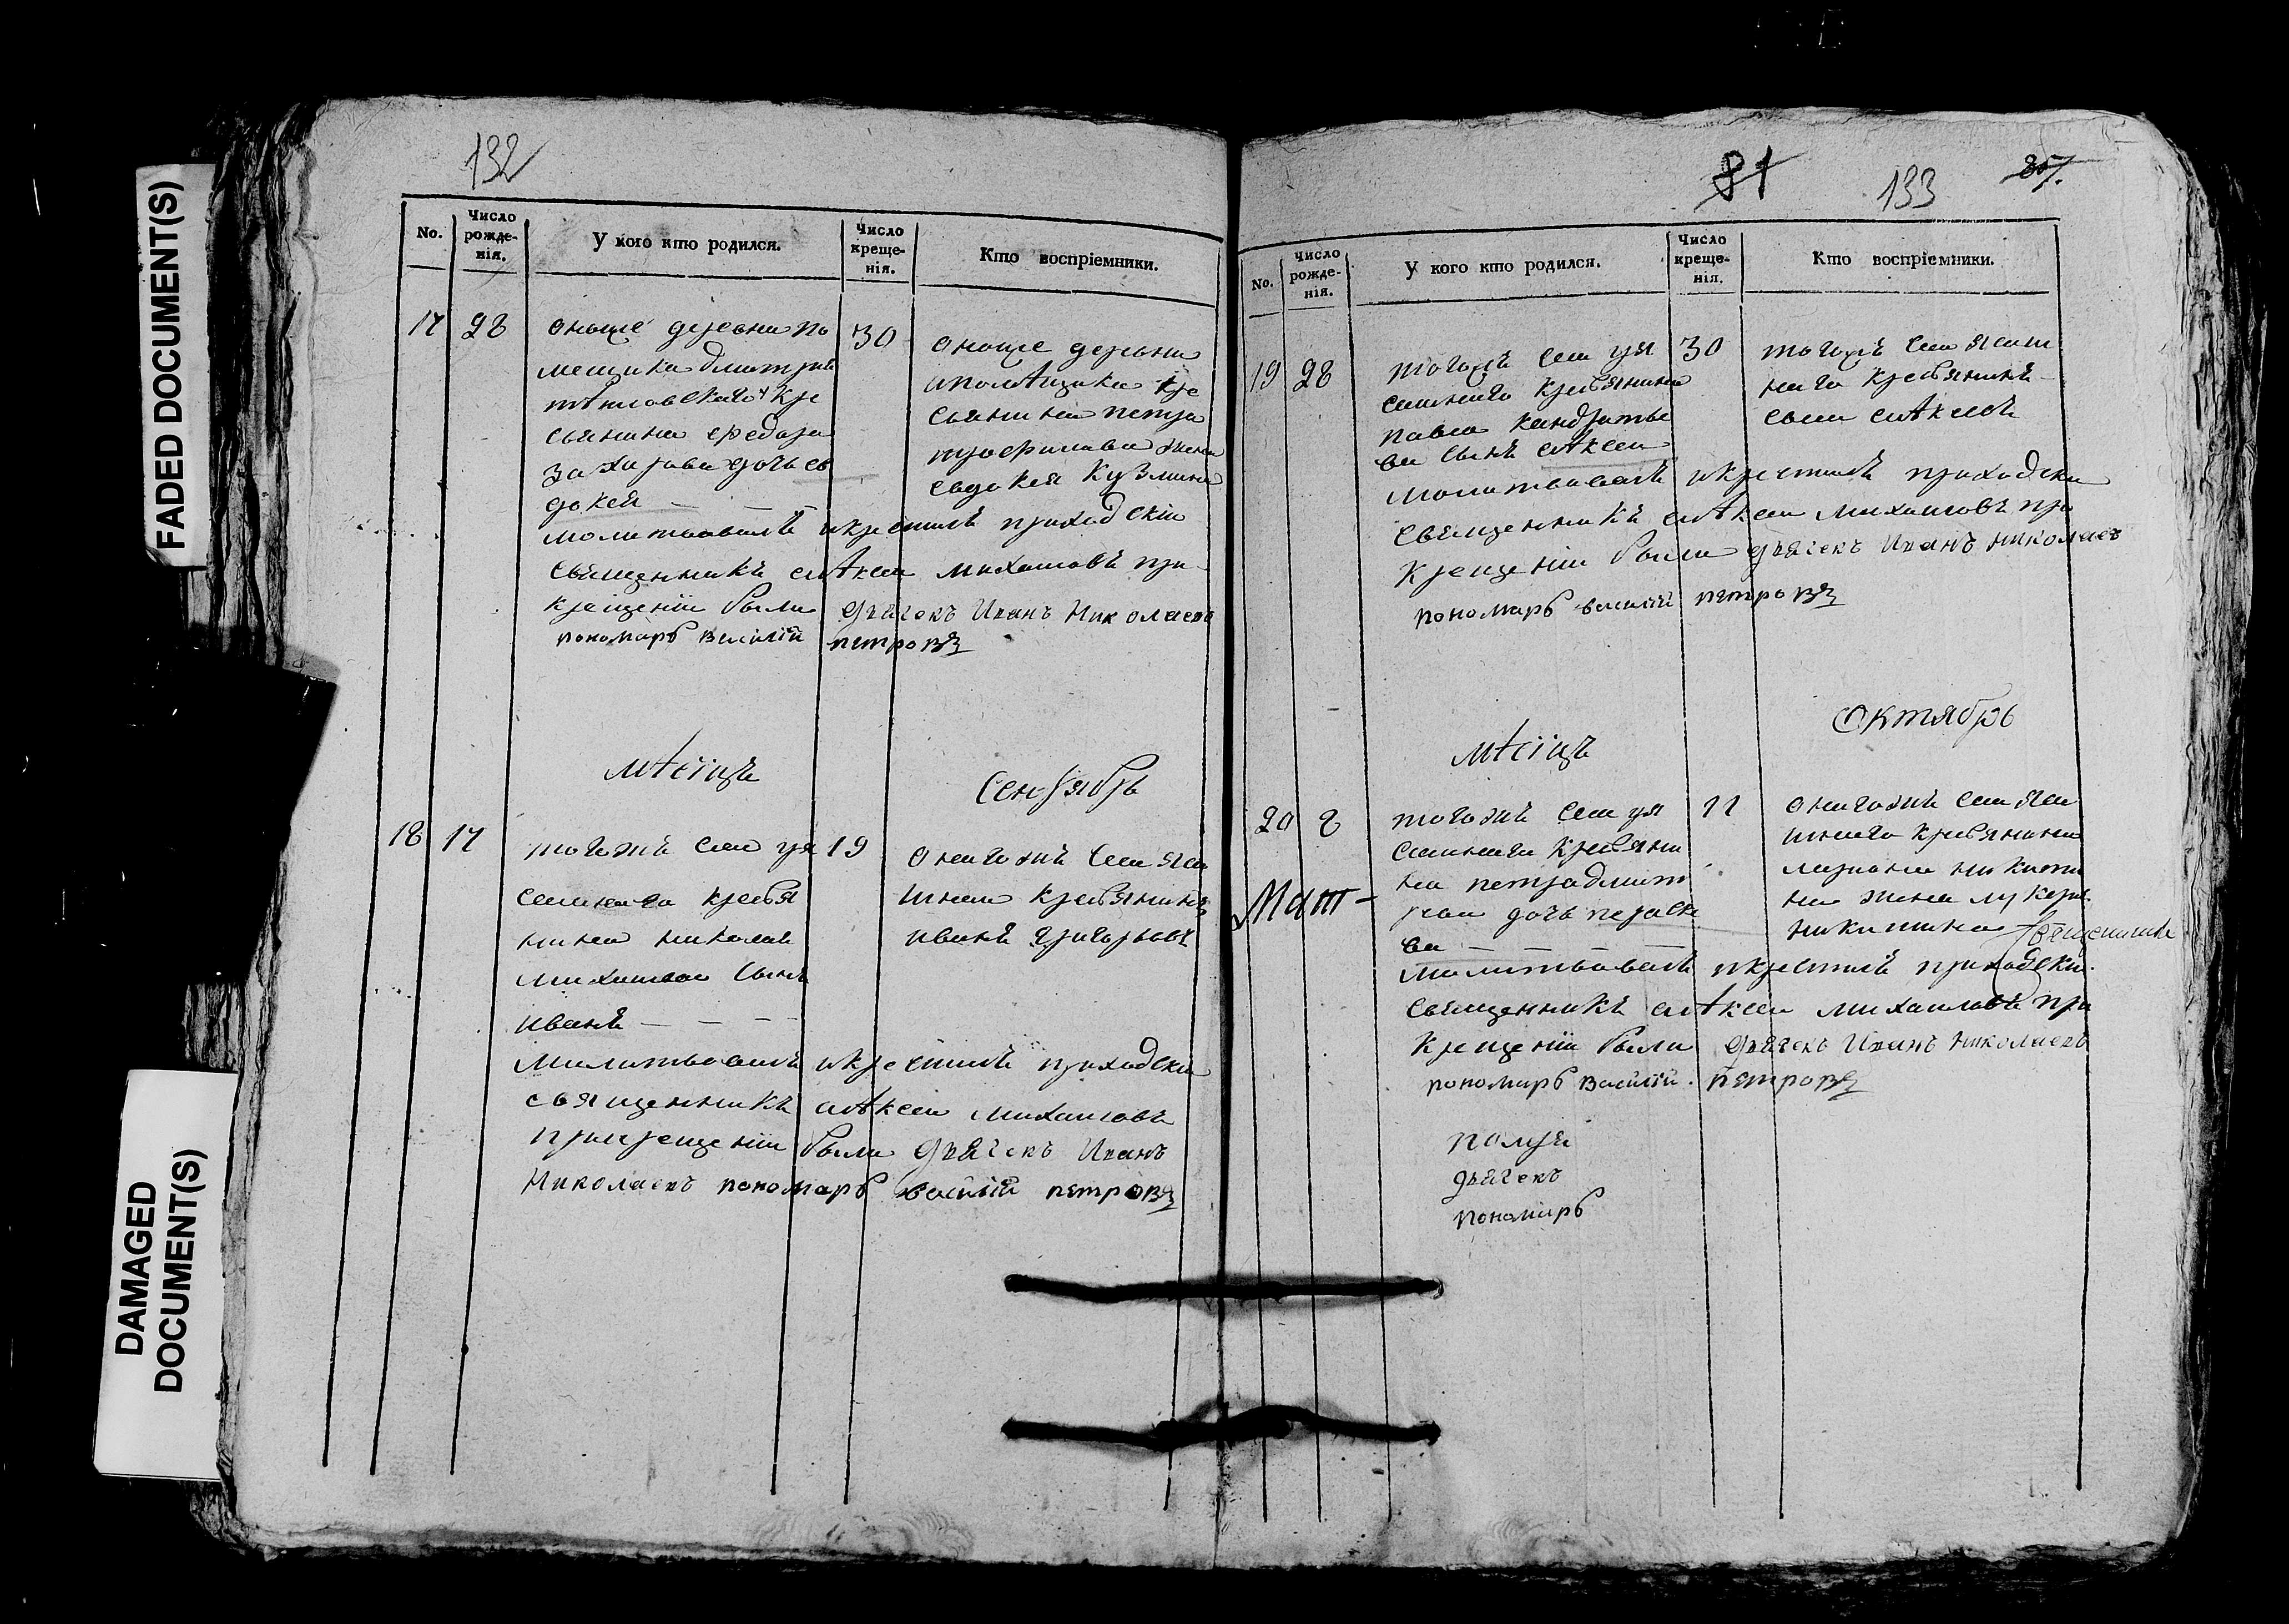 FADED DOCUMENT(S)
DAMAGED
DOCUMENT(S)
132
No.
Число
рожде-
нія.
У кого кто родился.
Число
креще-
нія.
Кто воспріемники.
17 28
деревни по
мещика Дмитрія
кре
сьянина Федора
Захарова дочь ев
докея
30
деревни
помещика кре
сьянина Петра
Трофимова жена
евдокея Кузмина
молитвовалъ и крестилъ приходскіи
священникъ алѣксеи михаиловъ при
крещеніи были дьячекъ Иванъ Николаевъ
пономарь василій петровъ
мѣсіцъ
сентябрь
18 17
тогожъ села уя
сашнаго кресья
нина николая
михаилова сынъ
иванъ
19
оногожъ села
кресьянинъ
иванъ григорьевъ
молитвовалъ и крестилъ приходски
священникъ алѣксеи михаиловъ
при крещеніи были дьячекъ Иванъ
Николаевъ пономарь василій петровъ
81
133
No.
Число
рожде-
нія.
У кого кто родился.
Число
креще-
нія.
Кто воспріемники.
19 28
тогожъ села уя
сашнаго кресьянина
павла кандратье
ва сынъ алѣксеи
30
тогожъ села
наго кресьянинъ
молитвовалъ и крестилъ приходски
священникъ алѣксеи михаиловъ при
крещеніи были дьячекъ Иванъ николаевъ
пономарь василій петровъ
мѣсіцъ
октябрь
20 8
тогожъ села уя
сашнага кресьяни
на петра дмит
дочь параске
ва
11
оногожъ села
кресьянина
никити
на жена лукерья
никитина
священникъ
молитвовалъ и крестилъ приходски
священникъ алѣксеи михаиловъ при
крещеніи были дьячекъ Иванъ николаевъ
пономарь василій петровъ
дьячекъ
пономарь